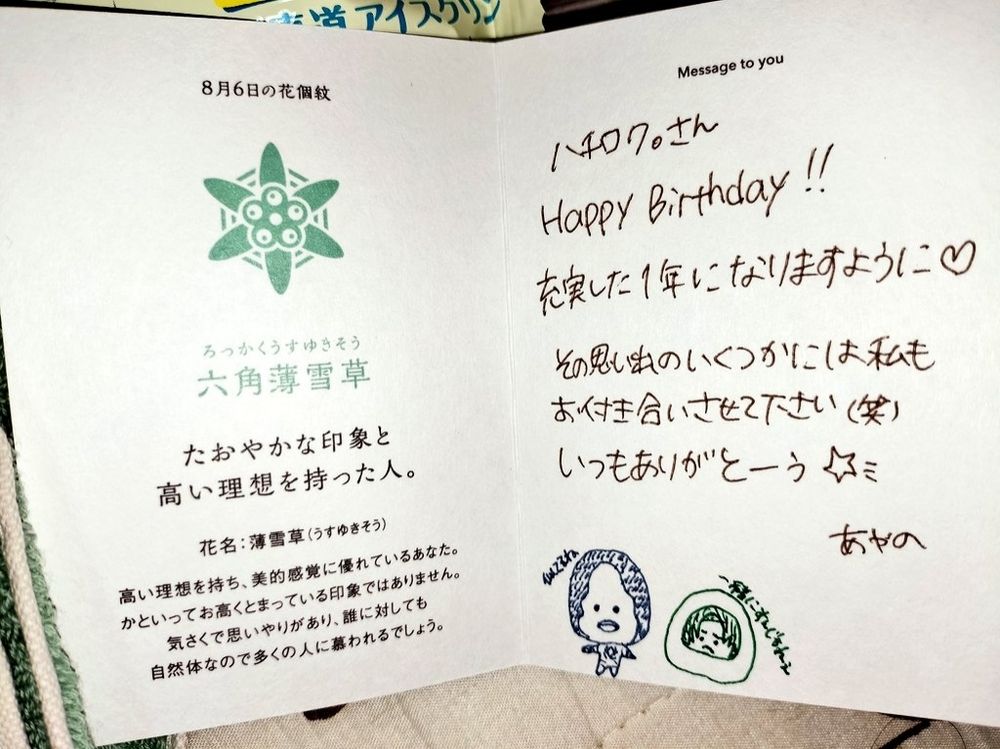 道アイスクリン
8月6日の花個紋
ろっかくうすゆきそう
六角薄雪草
たおやかな印象と
高い理想を持った人。
花名：薄雪草(うすゆきそう)
高い理想を持ち、美的感覚に優れているあなた。
かといってお高くとまっている印象ではありません。
気さくで思いやりがあり、誰に対しても
自然体なので多くの人に慕われるでしょう。
Message to you
ハチロク。さん
Happy Birthday!!
充実した1年になりますように♡
その思い出のいくつかには私も
お付き合いさせて下さい(笑)
いつもありがとーう☆ミ
あやの